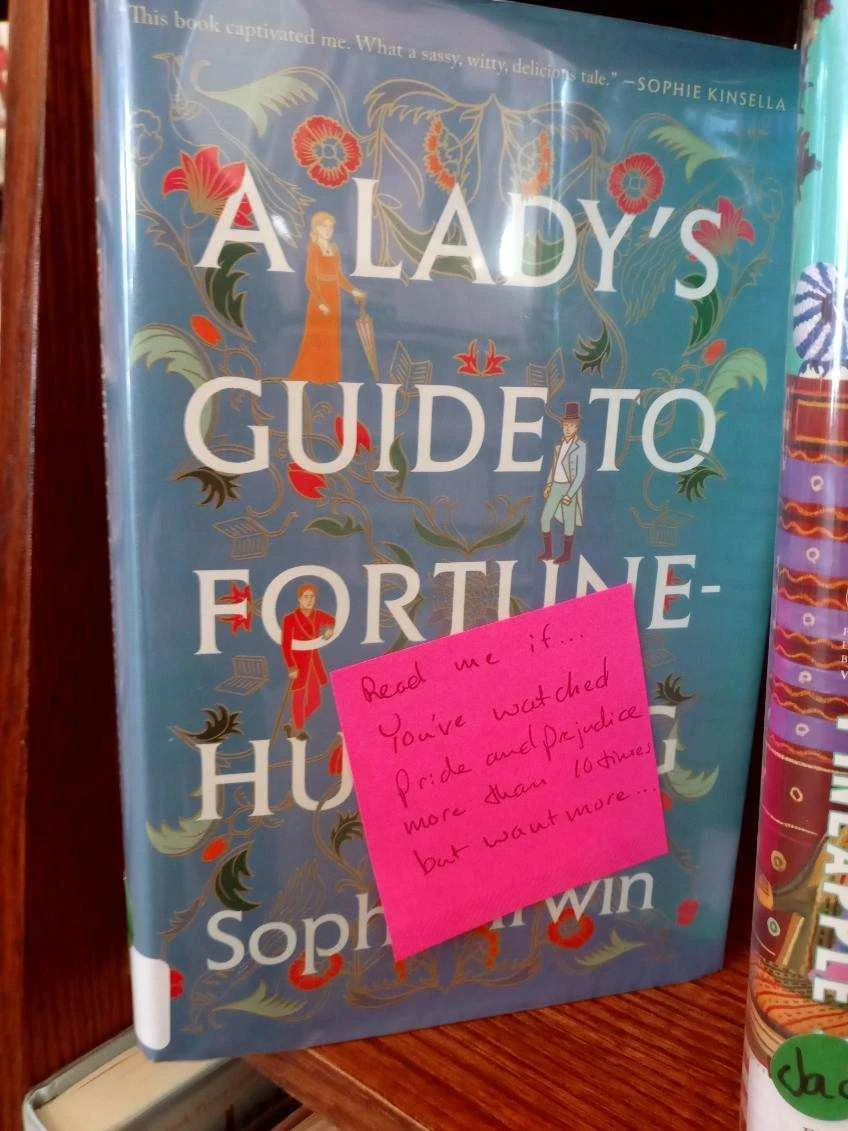 This book captivated me. What a sassy, witty, delicious tale." —SOPHIE KINSELLA
A LADY'S
GUIDE TO
FORTUNE-
HU G
Soph irwin
Read me if...
You've watched
Pride and Prejudice
more than 10 times
but want more...
PINEAPPLE
Jac